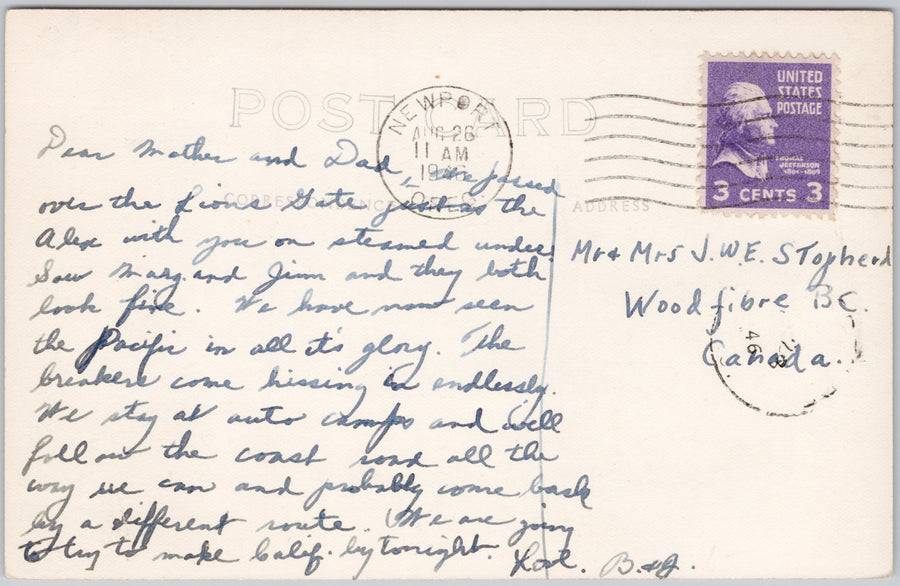 POST CARD
CORRESPONDENCE
ADDRESS
NEWPORT
AUG 26
11 AM
1946
OREG.
UNITED
STATES
POSTAGE
THOMAS
JEFFERSON
1801-1809
3 CENTS 3
Dear Mother and Dad, we passed
over the Lions Gate just as the
Alex with you on steamed under.
Saw Marg. and Jim and they both
look fine. We have now seen
the Pacific in all it's glory. The
breakers come hissing in endlessly.
We stay at auto camps and will
follow the coast road all the
way we can and probably come back
by a different route. We are going
to try to make Calif. by tonight.
B. & J.
Mr & Mrs J.W.E. STopherd
Woodfibre BC.
Canada.
46